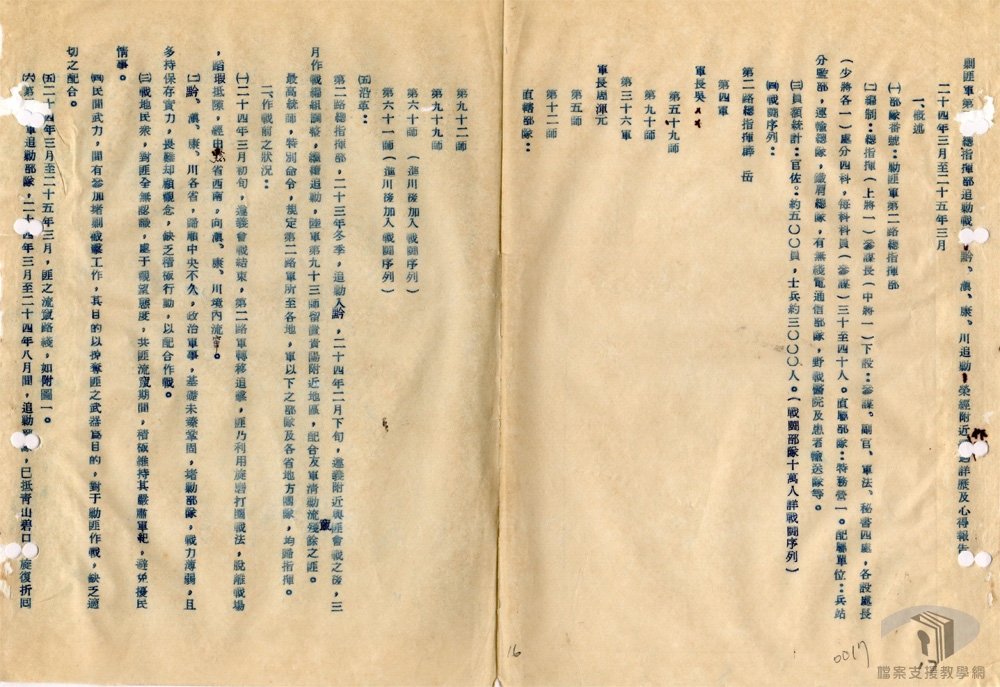 剿匪軍第 總指揮部追剿戰 黔、滇、康、川追剿 榮經附近 過詳歷及心得報告
二十四年三月至二十五年三月
一、概述
㈠部隊番號:剿匪軍第二路總指揮部
㈡編制:總指揮(上將一)參謀長(中將一)下設:參謀、副官、軍法、秘書四處,各設處長
(少將各一)處分四科,每科科員(參謀)三十至四十人。直屬部隊:特務營一。配屬單位:兵站
分監部,運輸總隊,鐵肩總隊,有無綫電通信部隊,野戰醫院及患者輸送隊等。
㈢員額統計:官佐:約五〇〇員,士兵約三〇〇〇人。(戰鬪部隊十萬人詳戰鬪序列)
㈣戰鬪序列:
第二路總指揮薛 岳
第四軍
軍長吳
第五十九師
第九十師
第三十六軍
軍長周渾元
第五師
第十三師
直轄部隊:
第九十二師
第九十九師
第六十師(進川後加入戰鬪序列)
第六十一師(進川後加入戰鬪序列)
㈤沿革:
第二路軍總指揮部,二十三年冬季,追剿入黔,二十四年二月下旬,遵義附近與匪會戰之後,三
月作戰編組調整,繼續追剿,陸軍第九十三師留置貴陽附近地區,配合友軍清剿流竄殘餘之匪。
最高統帥,特別命令,規定第二路軍所至各地,軍以下之部隊及各省地方團隊,均歸指揮。
二、作戰前之狀況:
㈠二十四年三月初旬,遵義會戰結束,第二路軍轉移追擊,匪乃利用旋磨打圈戰法,脫離戰場
,蹈瑕抵隙,經由 省西南,向滇、康、川境內流竄。
㈡黔、滇、康、川各省,歸順中央不久,政治軍事,基礎未臻鞏固,堵剿部隊,戰力薄弱,且
多持保存實力,畏難却顧觀念,缺乏積極行動,以配合作戰。
㈢戰地民衆,對匪全無認識,處于觀望態度,共匪流竄期間,積極維持其嚴肅軍紀,避免擾民
情事。
㈣民間武力,間有參加堵剿截擊工作,其目的以掠奪匪之武器爲目的,對于剿匪作戰,缺乏適
切之配合。
㈤二十四年三月至二十五年三月,匪之流竄路綫,如附圖一。
㈥第 軍追剿部隊,二十四年三月至二十四年八月間,追剿 ,已抵青山碧口 旋復折回
16
0017
檔案支援教學網